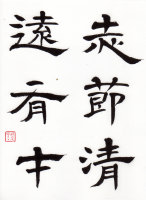 志節清
遠有才